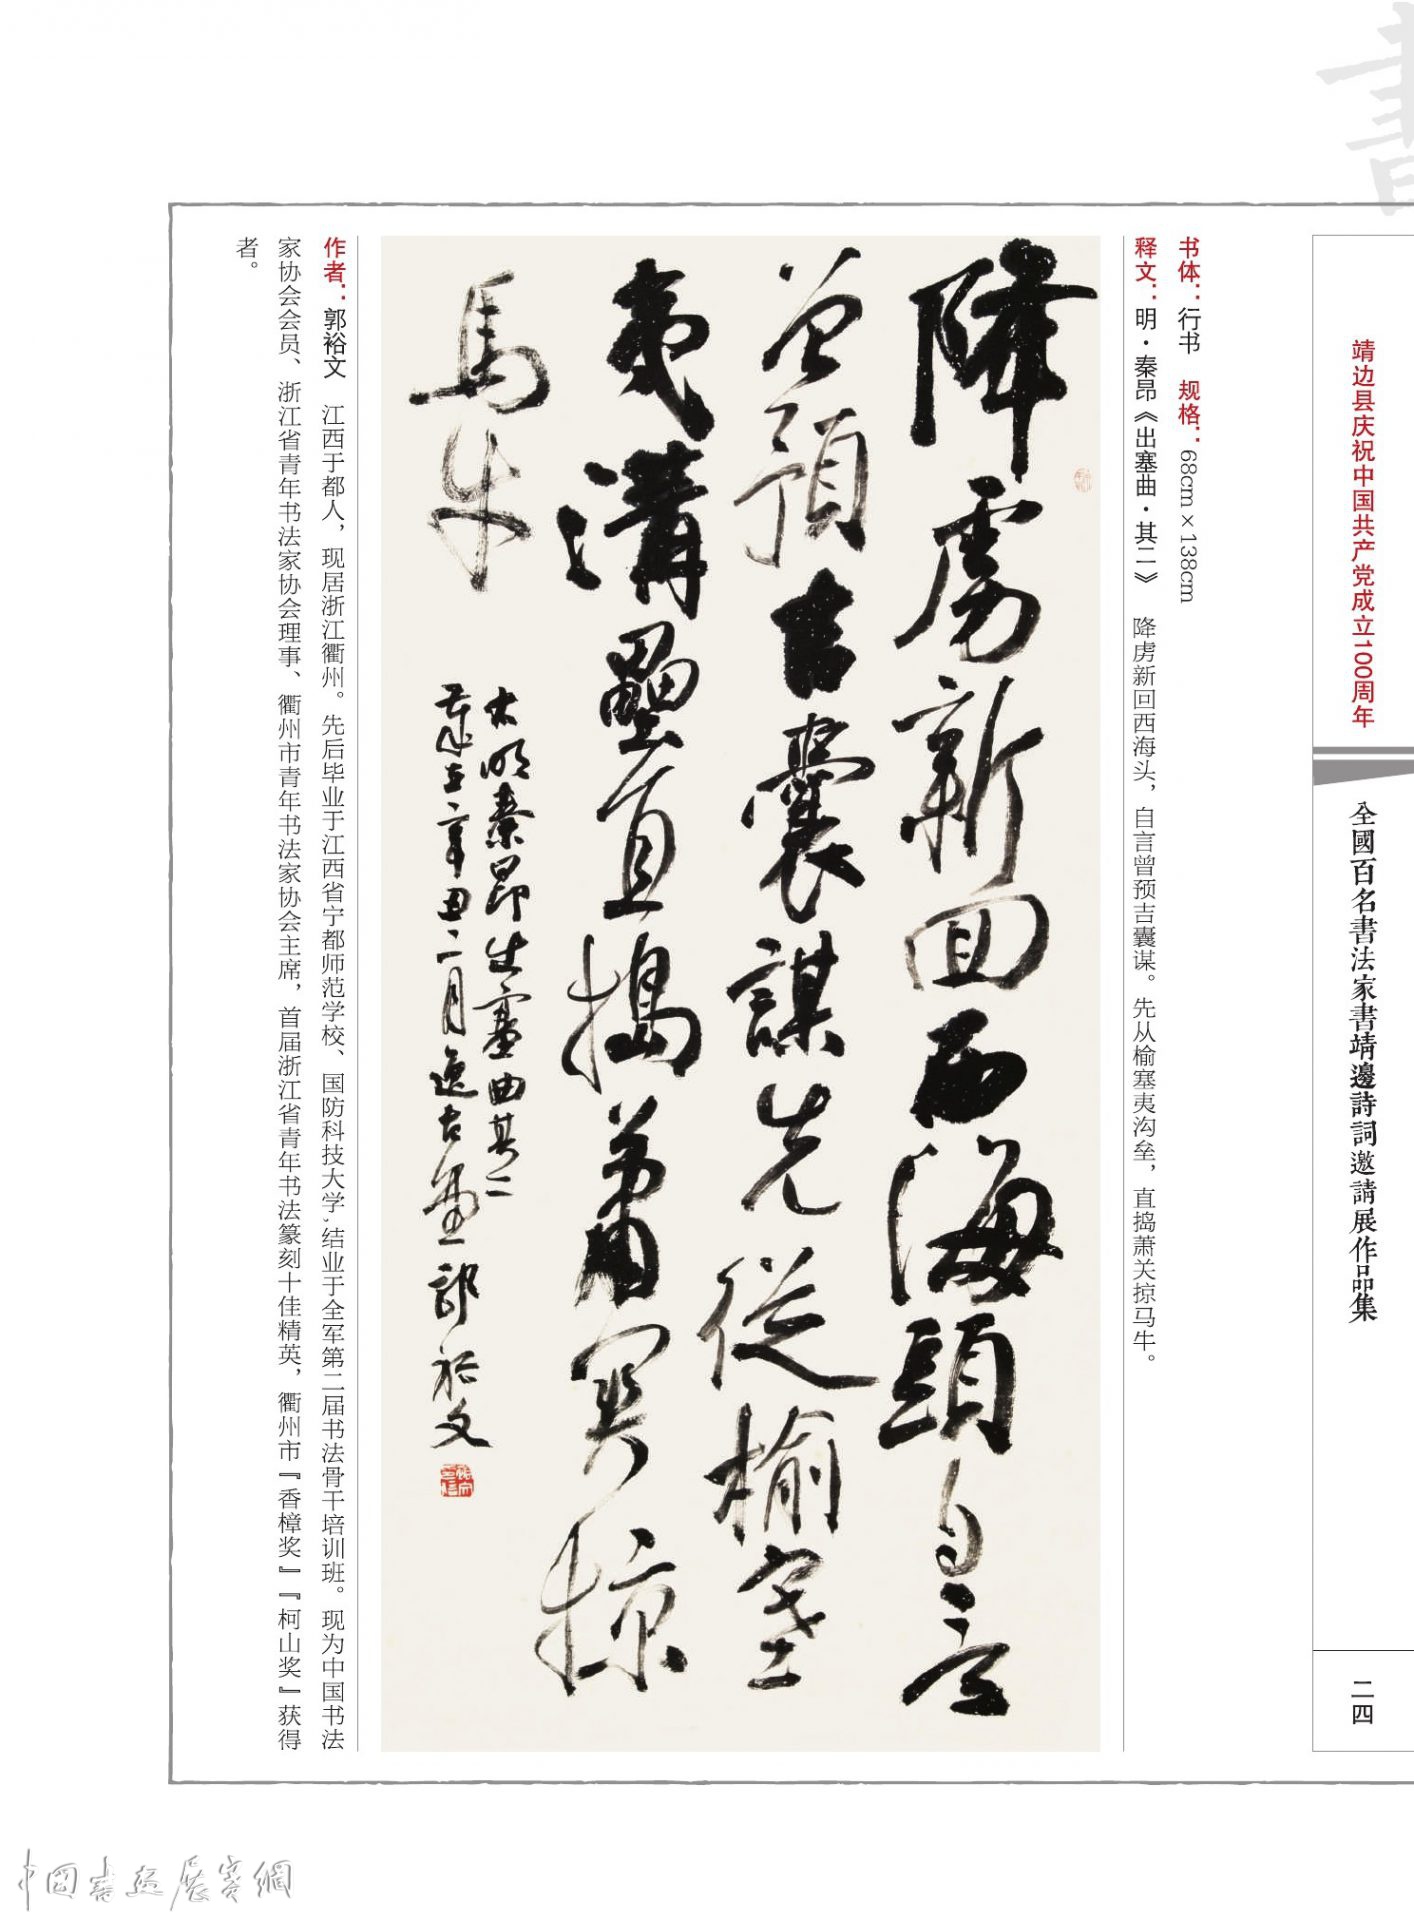 書
靖边县庆祝中国共产党成立100周年
全國百名書法家書靖邊詩詞邀請展作品集
二四
书体：行书 规格：68cm×138cm
释文：明·秦昂《出塞曲·其二》 降虏新回西海头，自言曾预吉囊谋。先从榆塞夷沟垒，直捣萧关掠马牛。
降虜新回西海頭自言
曾預吉囊謀先從榆塞
夷溝壘直搗蕭關掠
馬牛
大明秦昂出塞曲其二
辛丑二月逸古 郭裕文
作者：郭裕文 江西于都人，现居浙江衢州。先后毕业于江西省宁都师范学校、国防科技大学,结业于全军第二届书法骨干培训班。现为中国书法
家协会会员、浙江省青年书法家协会理事、衢州市青年书法家协会主席，首届浙江省青年书法篆刻十佳精英，衢州市『香樟奖』『柯山奖』获得
者。
中國書画展賽網